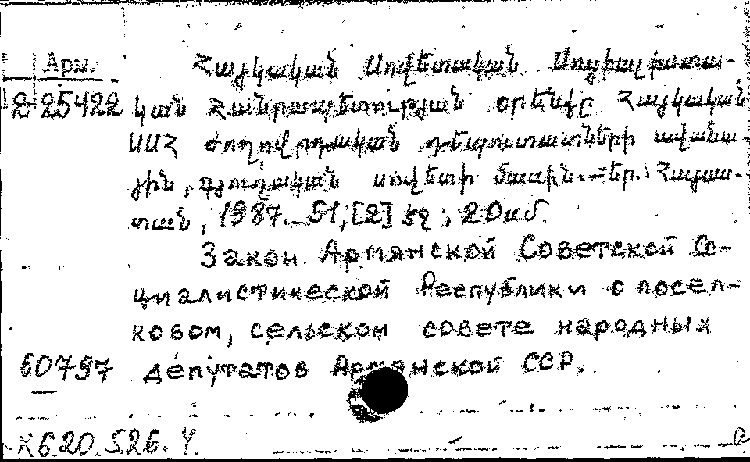 Арм. Հայկական Սովետական Սոցիալիստա-
2-25422 կան Հանրապետության օրենքը Հայկական
ՍՍՀ ժողովրդական դեպուտատների ավանա-
յին, գյուղական սովետի մասին.—Եր.: Հայաս-
տան, 1987.—51, [2] էջ; 20սմ.
Закон Армянской Советской Со-
циалистической Республики о посел-
ковом, сельском совете народных
60797 депутатов Армянской ССР.
К620.526.